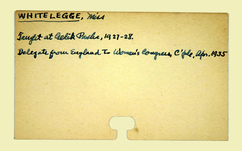 WHITELEGGE, Miss
Taught at Bebek, 1927-28.
Delegate from England to Women's Congress, C'ple, Apr. 1935